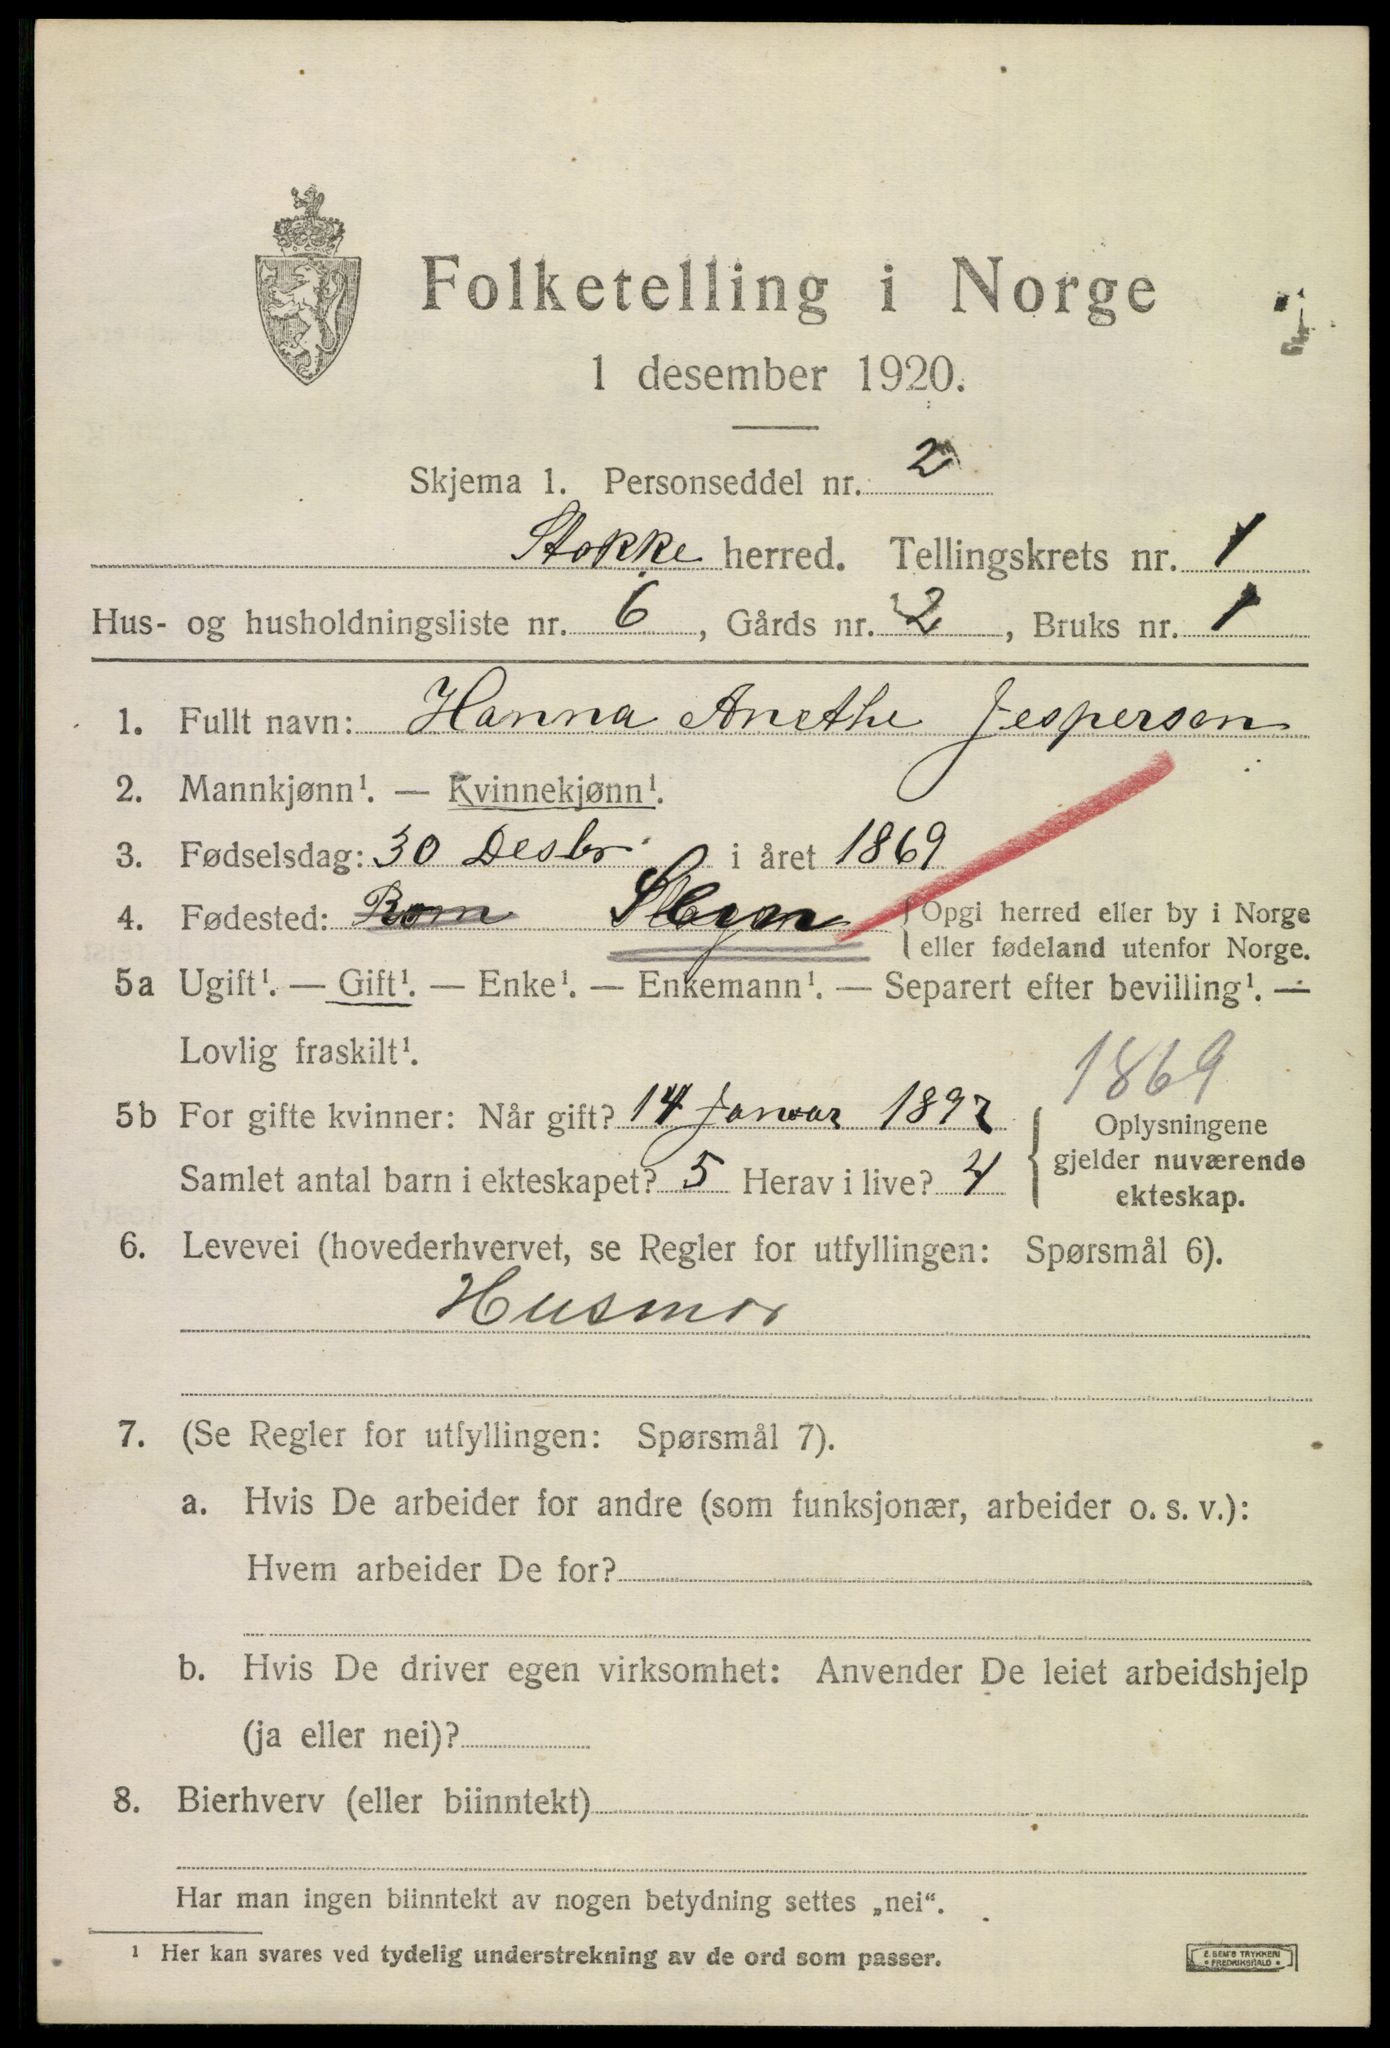 Folketelling i Norge
1 desember 1920.
Skjema 1. Personseddel nr. 2
Stokke herred. Tellingskrets nr. 1
Hus- og husholdningsliste nr. 6, Gårds nr. 2, Bruks nr. 1
1. Fullt navn: Hanna Anethe Jespersen
2. Mannkjønn¹. — Kvinnekjønn¹.
3. Fødselsdag: 30 Desbr i året 1869
4. Fødested: Rom Slagen { Opgi herred eller by i Norge
eller fødeland utenfor Norge.
5a Ugift¹. — Gift¹. — Enke¹. — Enkemann¹. — Separert efter bevilling¹. —
Lovlig fraskilt¹.
1869
5b For gifte kvinner: Når gift? 14 Januar 1892
Samlet antal barn i ekteskapet? 5 Herav i live? 4
{ Oplysningene
gjelder nuværende
ekteskap.
6. Levevei (hovederhvervet, se Regler for utfyllingen: Spørsmål 6).
Husmor
7. (Se Regler for utfyllingen: Spørsmål 7).
a. Hvis De arbeider for andre (som funksjonær, arbeider o. s. v.):
Hvem arbeider De for?
b. Hvis De driver egen virksomhet: Anvender De leiet arbeidshjelp
(ja eller nei)?
8. Bierhverv (eller biinntekt)
Har man ingen biinntekt av nogen betydning settes „nei“.
¹ Her kan svares ved tydelig understrekning av de ord som passer.
E. SEM'S TRYKKERI
• FREDRIKSHALD •